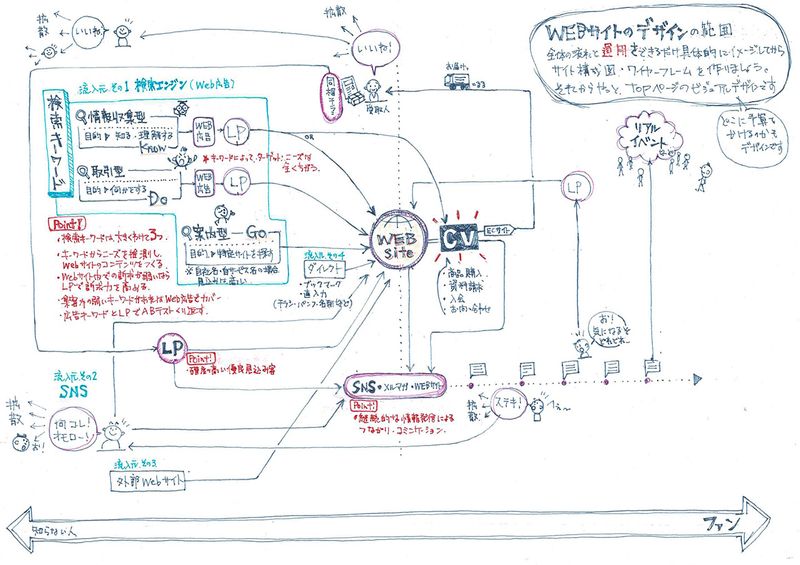 WEBサイトのデザインの範囲
全体の流れと運用をできるだけ具体的にイメージしてから
サイト構成図・ワイヤーフレームを作りましょう。
それからやっと、TOPページのビジュアルデザインです
どこに予算を
かけるのかも
デザインです
拡散
いいね!
いいね!
拡散
同梱チラシ
受取人
お届け
流入元.その1 検索エンジン(Web広告)
検索キーワード
情報収集型
目的▶知る・理解する
Know
WEB
広告
LP
OR
取引型
目的▶何かする
Do
WEB
広告
LP
※キーワードによって、ターゲット・ニーズは
全くちがう。
案内型 ー Go
目的▶特定サイトを探す
※自社名・自サービス名の場合
見込みは高い
Point!
・検索キーワードは大きくわけて3つ。
・キーワードからニーズを推測し
Webサイトのコンテンツをつくる。
・Webサイト内での訴求が弱いなら
LPで訴求力を高める。
・集客力の弱いキーワードがあればWeb広告でカバー
・広告キーワードとLPでABテストくり返す。
流入元.その4
ダイレクト
・ブックマーク
・直入力
(チラシ・パンフ・名刺など)
WEB
Site
CV
ECサイト
・商品購入
・資料請求
・入会
・お問い合わせ
LP
リアル
イベント
など
お!
気になるぞ
どれどれ〜
LP
Point!
・確度の高い優良見込み客
流入元.その2
SNS
拡散
何コレ!
オモロー!
お!
SNS・メルマガ・WEBサイト
Point!
・継続的な情報発信による
つながり・コミュニケーション。
拡散
ステキ!
へぇ〜
流入元.その3
外部Webサイト
知らない人
ファン